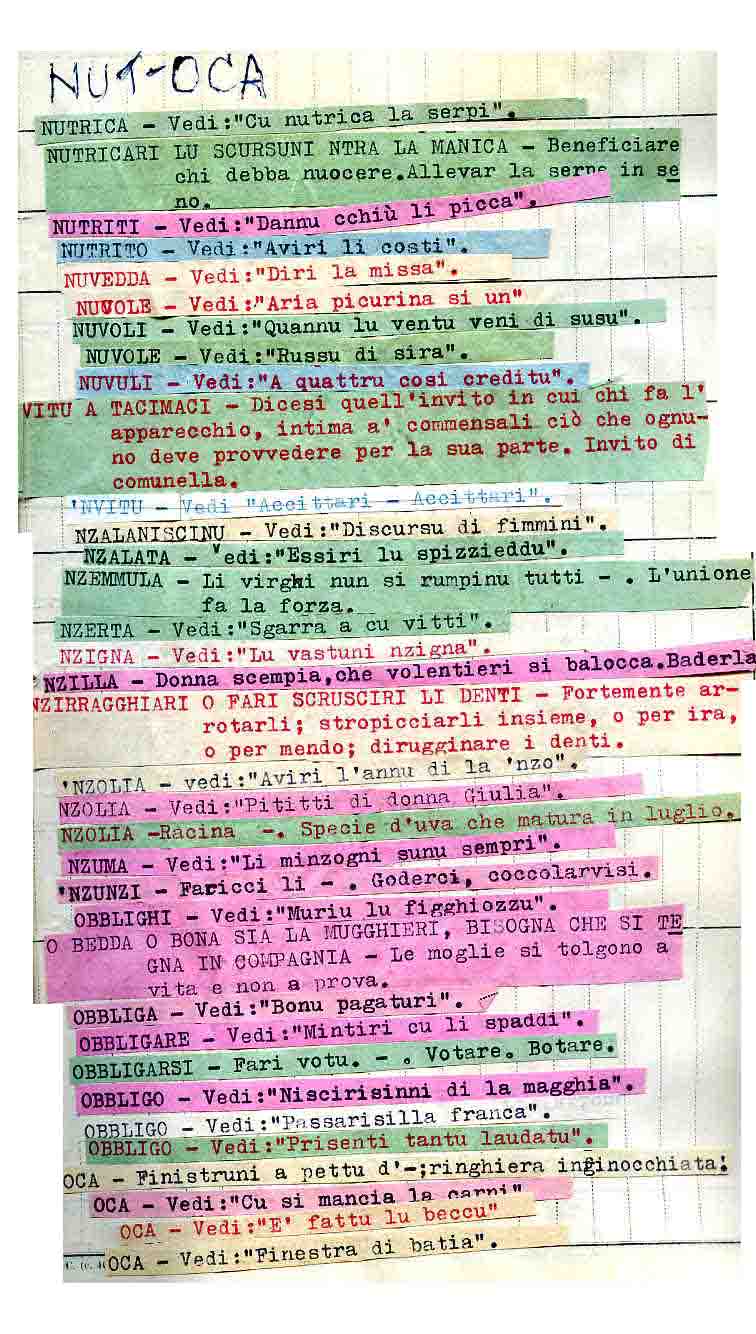 NUT-OCA
NUTRICA - Vedi:"Cu nutrica la serpi".
NUTRICARI LU SCURSUNI NTRA LA MANICA - Beneficiare
chi debba nuocere.Allevar la serpe in se
no.
NUTRITI - Vedi:"Dannu cchiù li picca".
NUTRITO - Vedi:"Aviri li costi".
NUVEDDA - Vedi:"Diri la missa".
NUVOLE - Vedi:"Aria picurina si un"
NUVOLI - Vedi:"Quannu lu ventu veni di susu".
NUVOLE - Vedi:"Russu di sira".
NUVULI - Vedi:"A quattru cosi creditu".
VITU A TACIMACI - Dicesi quell'invito in cui chi fa l'
apparecchio, intima a' commensali ciò che ognu-
no deve provvedere per la sua parte. Invito di
comunella.
'NVITU - Vedi "Accittari - Accittari".
NZALANISCINU - Vedi:"Discursu di fimmini".
NZALATA - Vedi:"Essiri lu spizzieddu".
NZEMMULA - Li virghi nun si rumpinu tutti - . L'unione
fa la forza.
NZERTA - Vedi:"Sgarra a cu vitti".
NZIGNA - Vedi:"Lu vastuni nzigna".
'NZILLA - Donna scempia,che volentieri si balocca.Baderla
NZIRRAGGHIARI O FARI SCRUSCIRI LI DENTI - Fortemente ar-
rotarli; stropicciarli insieme, o per ira,
o per mendo; dirugginare i denti.
'NZOLIA - vedi:"Aviri l'annu di la 'nzo".
NZOLIA - Vedi:"Pititti di donna Giulia".
NZOLIA -Racina -. Specie d'uva che matura in luglio.
NZUMA - Vedi:"Li minzogni sunu sempri".
'NZUNZI - Faricci li - . Goderci, coccolarvisi.
OBBLIGHI - Vedi:"Muriu lu figghiozzu".
O BEDDA O BONA SIA LA MUGGHIERI, BISOGNA CHE SI TE
GNA IN COMPAGNIA - Le moglie si tolgono a
vita e non a prova.
OBBLIGA - Vedi:"Bonu pagaturi".
OBBLIGARE - Vedi:"Mintiri cu li spaddi".
OBBLIGARSI - Fari votu. - . Votare. Botare.
OBBLIGO - Vedi:"Niscirisinni di la magghia".
OBBLIGO - Vedi:"Passarisilla franca".
OBBLIGO - Vedi:"Prisenti tantu laudatu".
OCA - Finistruni a pettu d'-;ringhiera inginocchiata:
OCA - Vedi:"Cu si mancia la carni"
OCA - Vedi:"E' fattu lu beccu"
OCA - Vedi:"Finestra di batia".